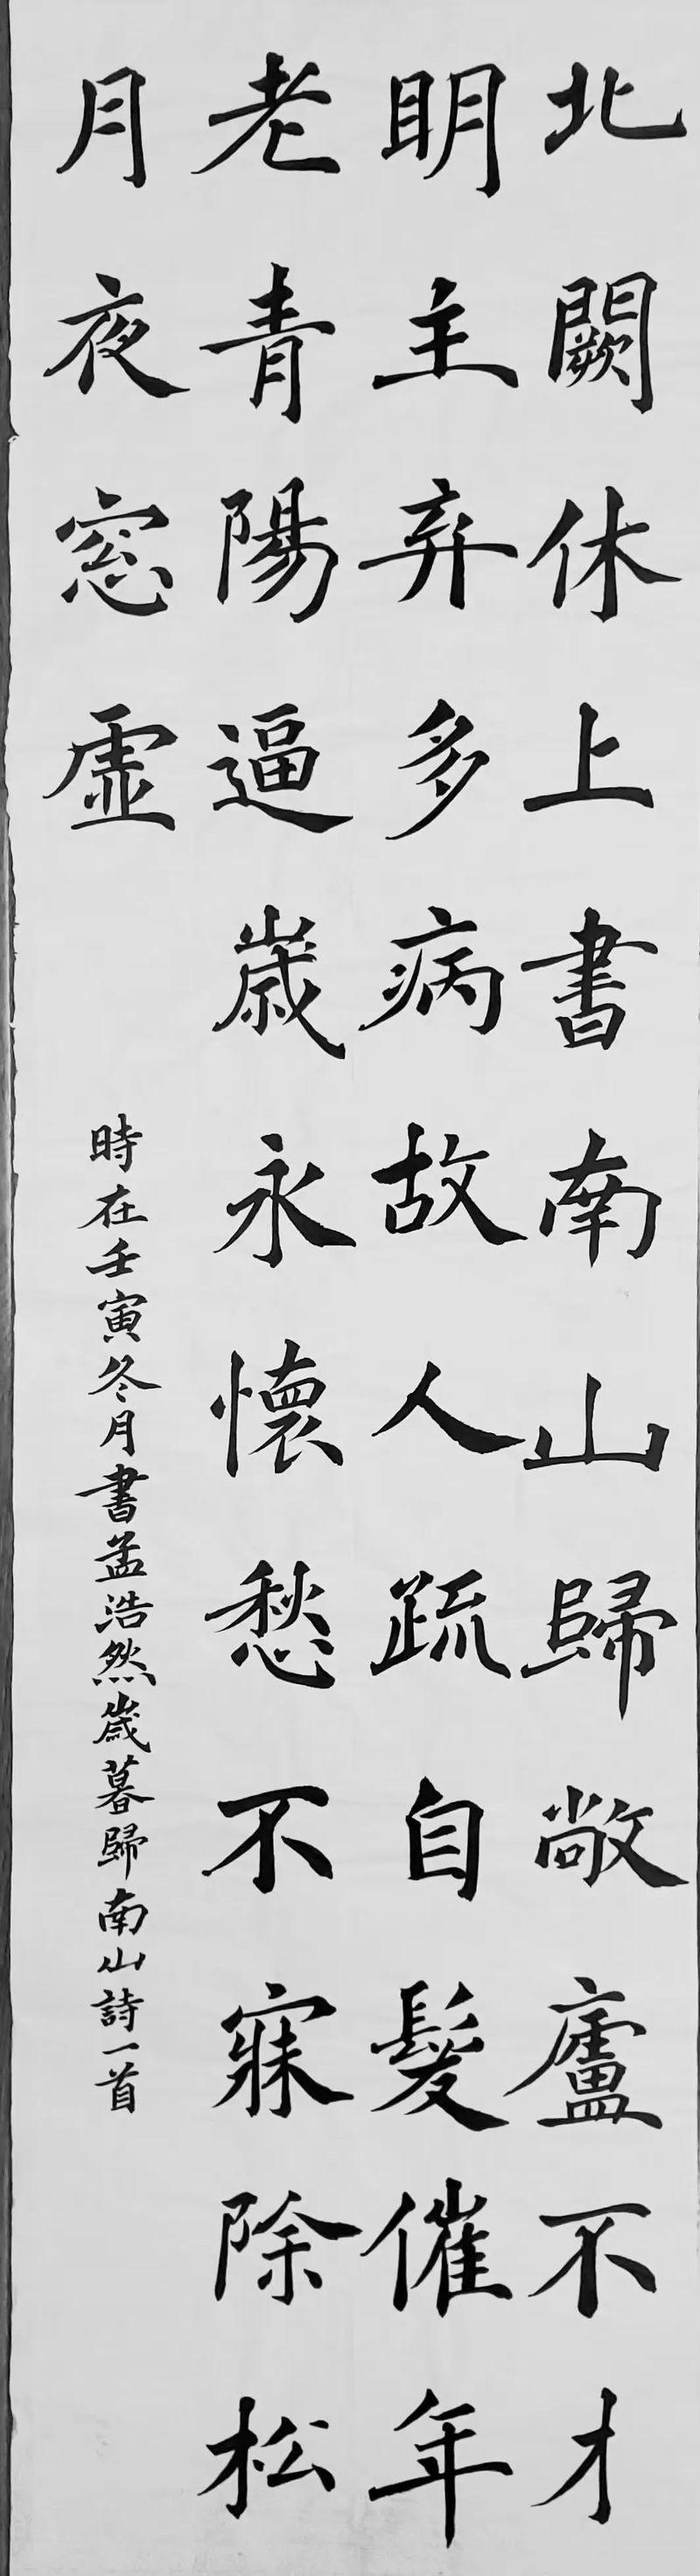 北闕休上書南山歸敝廬不才
明主弃多病故人疏自髮催年
老青陽逼歲永懷愁不寐除松
月夜窓虛
時在壬寅冬月書孟浩然歲暮歸南山詩一首